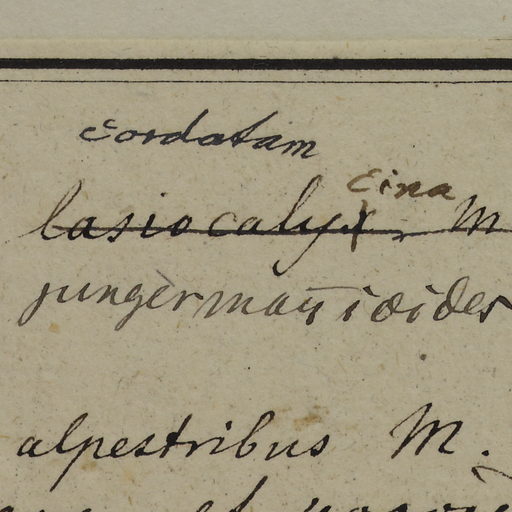 cordatam
cina
lasiocalyx M
jungermannioides
alpestribus M.
et